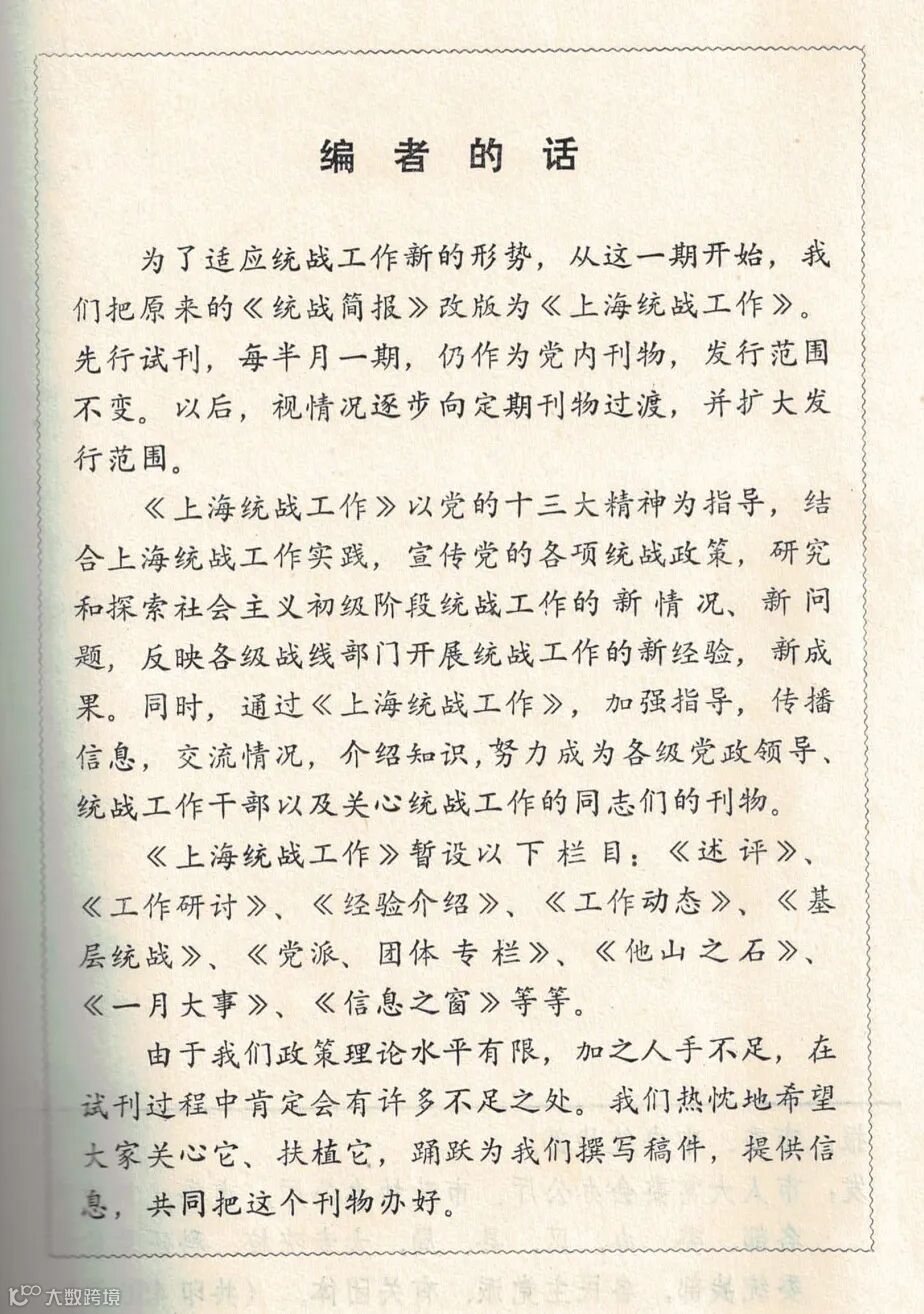 编者的话
为了适应统战工作新的形势，从这一期开始，我
们把原来的《统战简报》改版为《上海统战工作》。
先行试刊，每半月一期，仍作为党内刊物，发行范围
不变。以后，视情况逐步向定期刊物过渡，并扩大发
行范围。
《上海统战工作》以党的十三大精神为指导，结
合上海统战工作实践，宣传党的各项统战政策，研究
和探索社会主义初级阶段统战工作的新情况、新问
题，反映各级战线部门开展统战工作的新经验，新成
果。同时，通过《上海统战工作》，加强指导，传播
信息，交流情况，介绍知识，努力成为各级党政领导、
统战工作干部以及关心统战工作的同志们的刊物。
《上海统战工作》暂设以下栏目：《述评》、
《工作研讨》、《经验介绍》、《工作动态》、《基
层统战》、《党派、团体专栏》、《他山之石》、
《一月大事》、《信息之窗》等等。
由于我们政策理论水平有限，加之人手不足，在
试刊过程中肯定会有许多不足之处。我们热忱地希望
大家关心它、扶植它，踊跃为我们撰写稿件，提供信
息，共同把这个刊物办好。
大数跨境